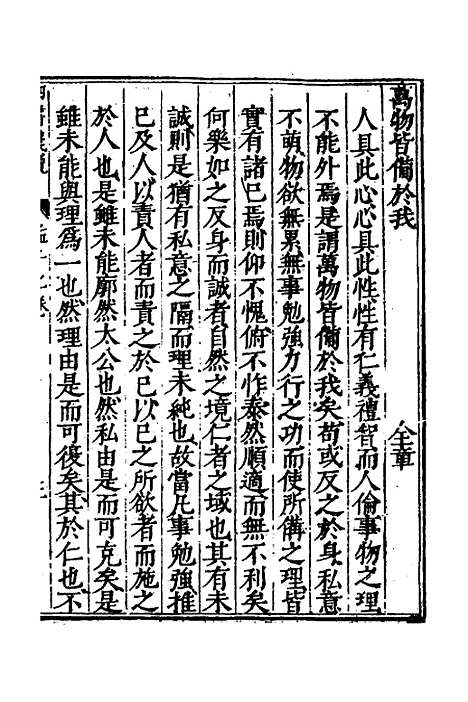 萬物皆備於我 全章
人具此心心具此性性有仁義禮智而人倫事物之理
不能外焉是謂萬物皆備於我矣苟或反之於身私意
不萌物欲無累無事勉強力行之功而使所備之理皆
實有諸己焉則仰不愧俯不怍泰然順適而無不利矣
何樂如之反身而誠者自然之境仁者之域也其有未
誠則是猶有私意之隔而理未純也故當凡事勉強推
已及人以責人者而責之於已以已之所欲者而施之
於人也是雖未能廓然大公也然私由是而可克矣是
雖未能與理爲一也然理由是而可復矣其於仁也不